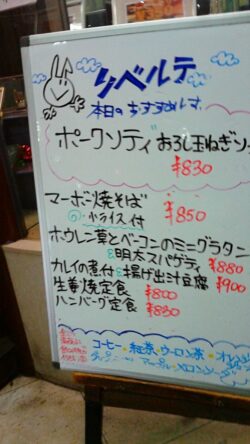 リベルテ
本日のおすすめです
ポークソティ おろし玉ねぎソ
¥830
マーボ焼そば
小ライス付 ¥850
ホウレン草とベーコンのミニグラタン
&明太スパゲティ ¥880
カレイの煮付&揚げ出汁豆腐 ¥900
生姜焼定食 ¥800
ハンバーグ定食 ¥830
コーヒー、紅茶、ウーロン茶・オレンジ